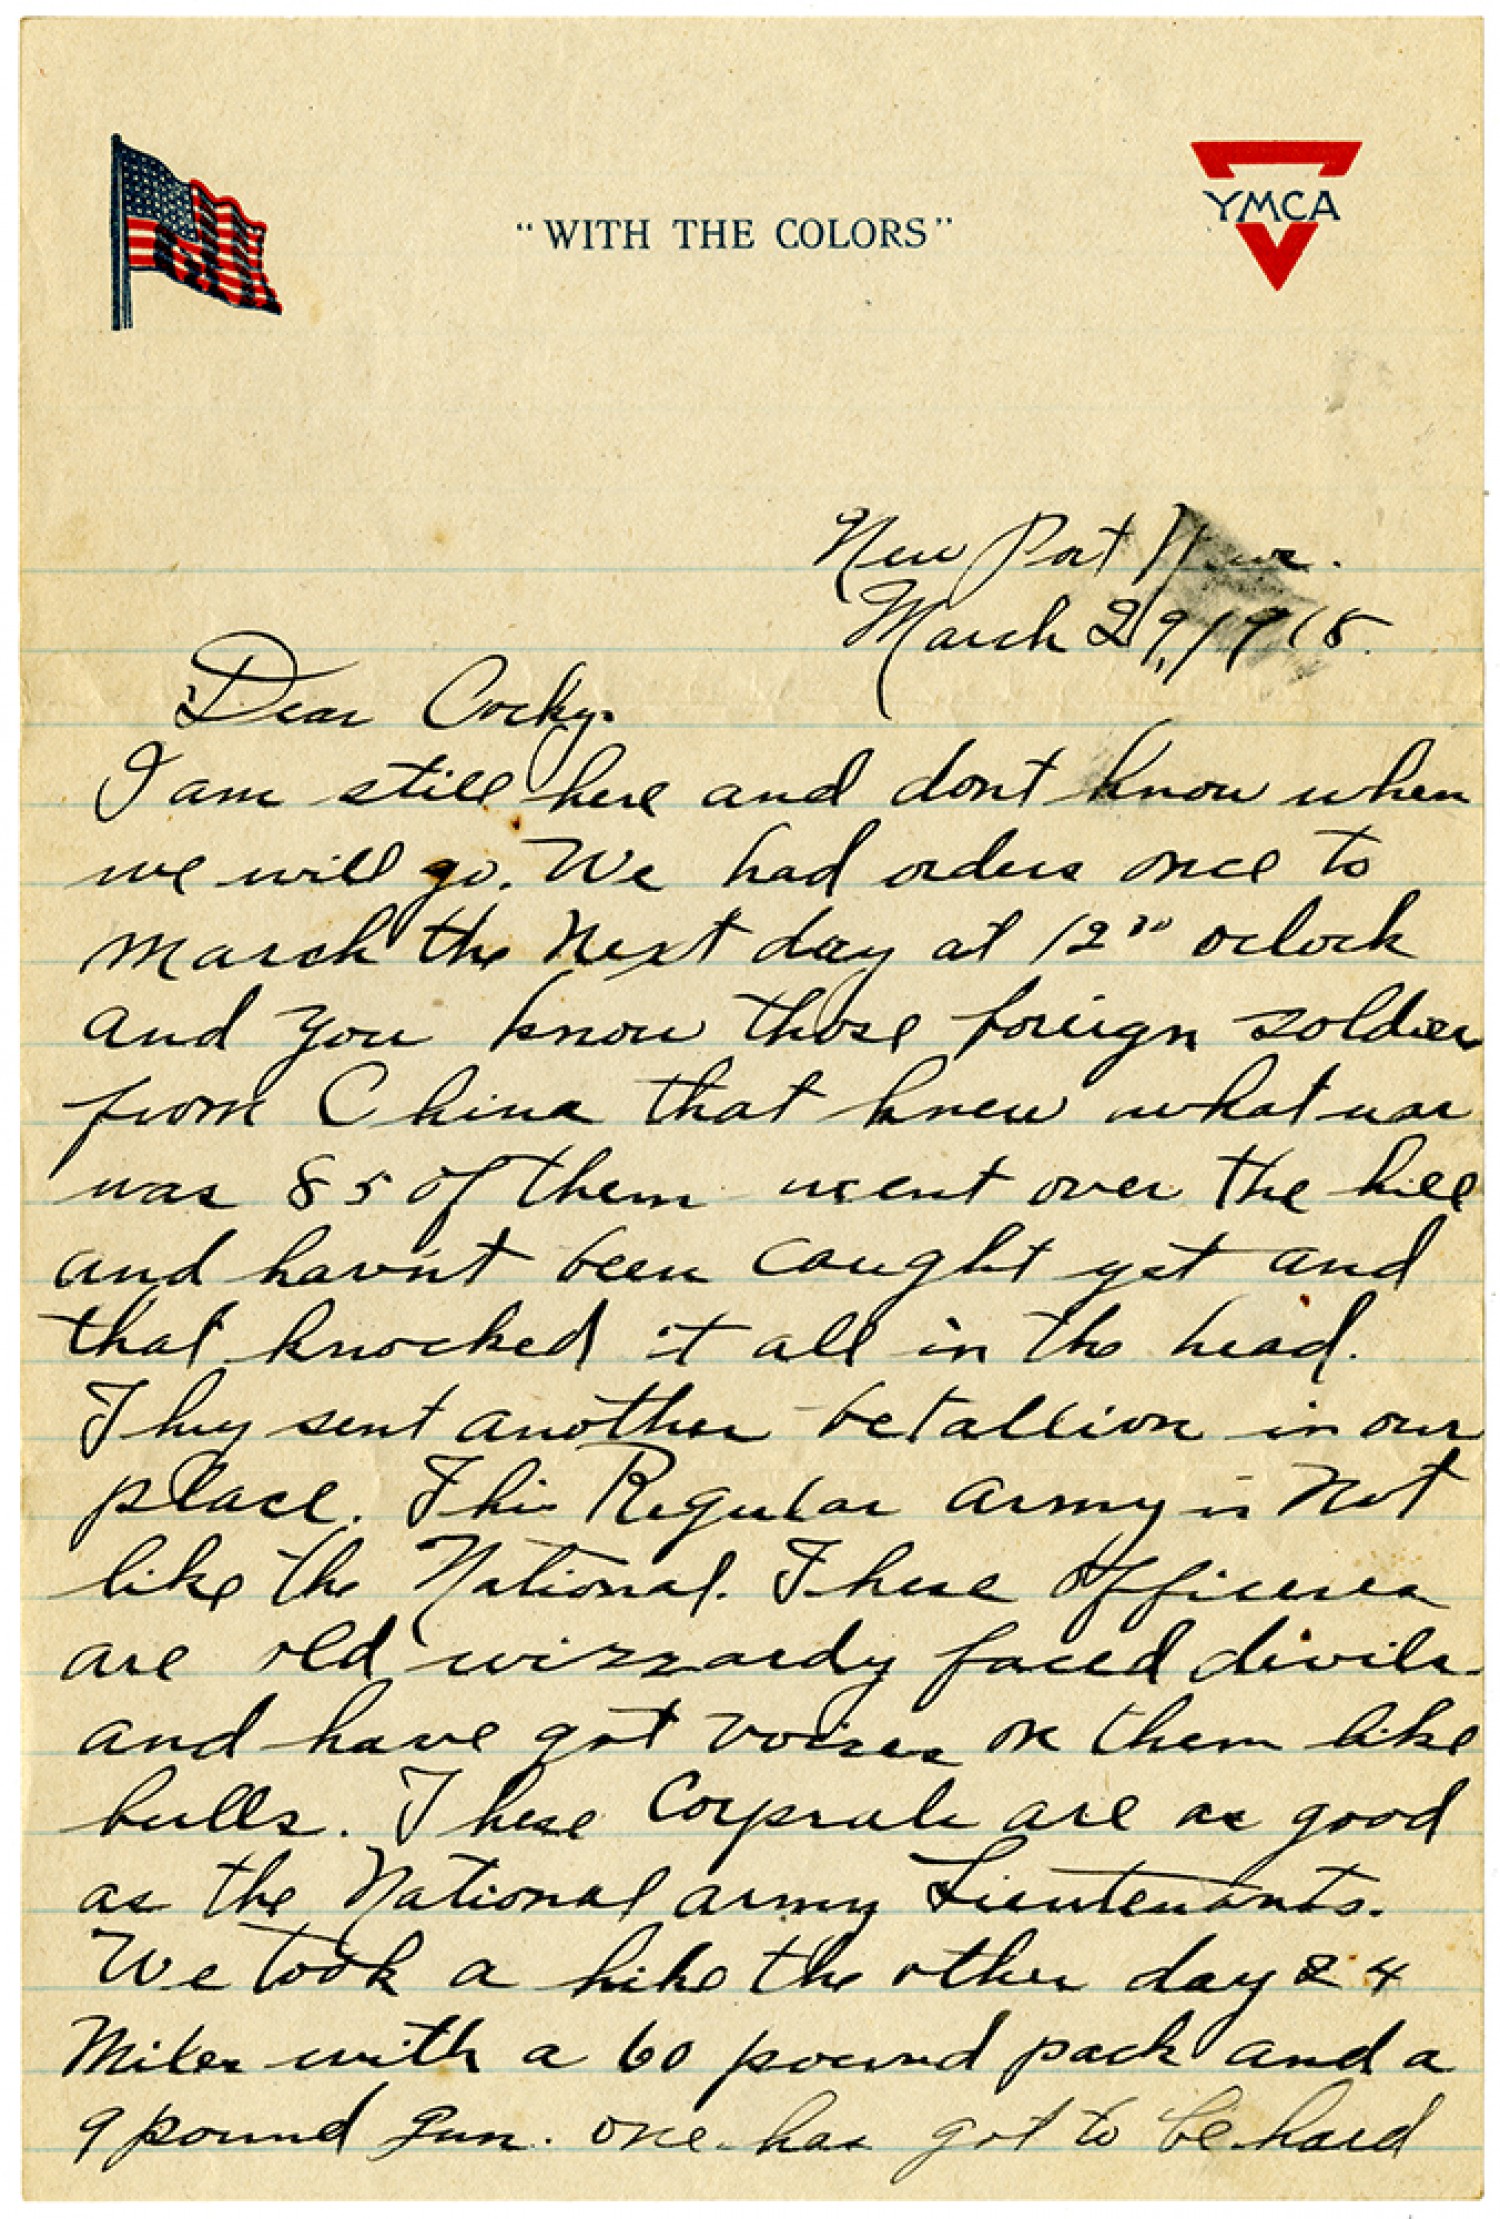 "WITH THE COLORS"
YMCA
New Port News.
March 29, 1918.
Dear Corky.
I am still here and dont know when
we will go. We had orders once to
march the next day at 12³⁰ oclock
and you know those foreign soldier
from China that knew what war
was 85 of them went over the hill
and havn't been caught yet and
that knocked it all in the head.
They sent another betallion in our
place. This Regular army is not
like the National. These officers
are old wizzardy faced divils
and have got voices on them like
bulls. These Corprals are as good
as the National army Lieutenants.
We took a hike the other day 24
Miles with a 60 pound pack and a
9 pound gun. one has got to be hard